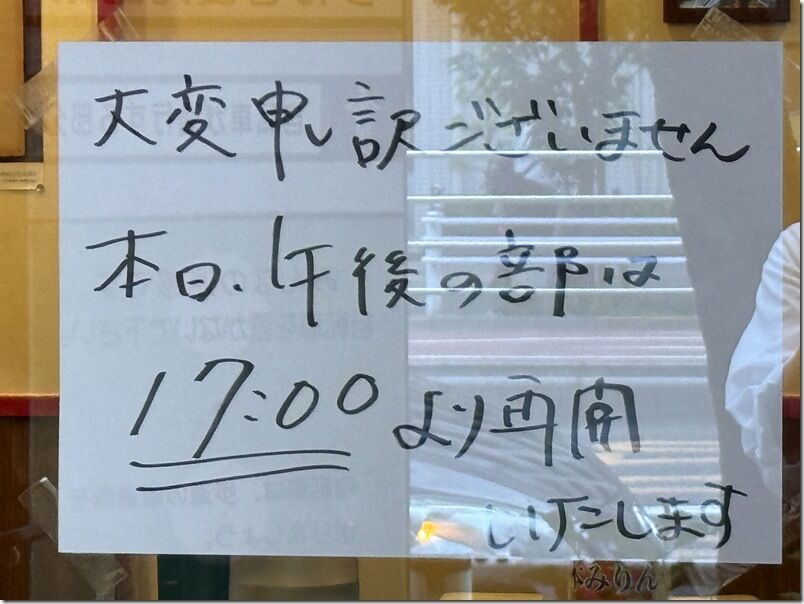 大変申し訳ございません
本日、午後の部は
17:00より再開
いたします
みりん